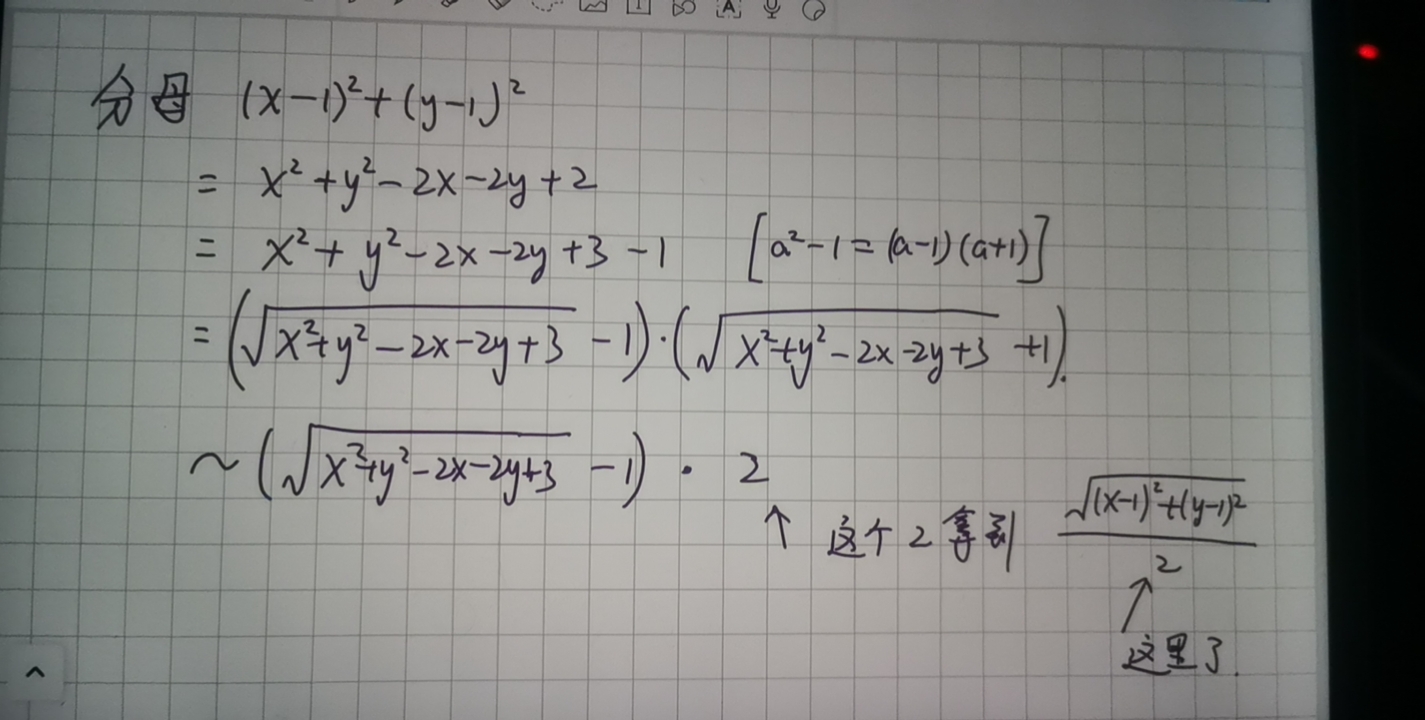 分母 (x-1)²+(y-1)²
= x²+y²-2x-2y+2
= x²+y²-2x-2y+3-1 [a²-1=(a-1)(a+1)]
=(√(x²+y²-2x-2y+3) -1)·(√(x²+y²-2x-2y+3) +1).
~(√(x²+y²-2x-2y+3) -1)· 2
↑ 这个2拿到 √((x-1)²+(y-1)²)/2
这里了.